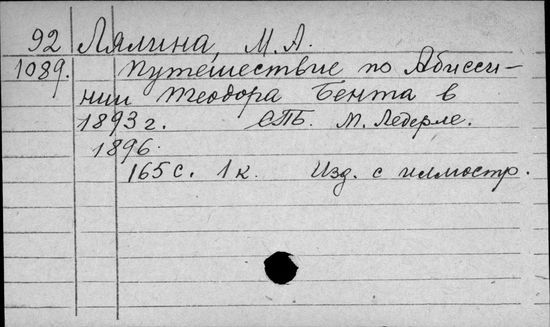 92 Лялина, М. А.
1089. Путешествие по Абисси-
нии Теодора Бента в
1893 г. СПБ. М. Ледерле.
1896.
165 с. 1 к. Изд. с иллюстр.